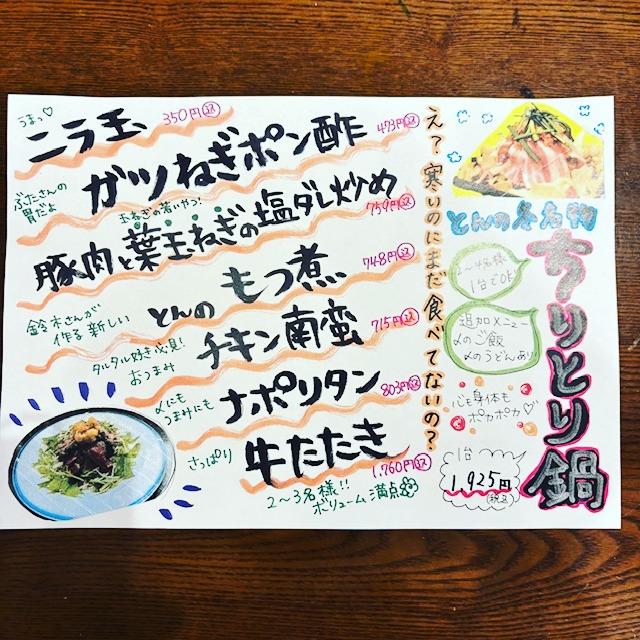 うまっ♡
ニラ玉 350円込
ぶたさんの
胃だよ
ガツねぎポン酢 473円込
玉ねぎの若いやつ!
豚肉と葉玉ねぎの塩ダレ炒め 759円込
鈴木さんが
作る新しい
とんのもつ煮 748円込
タルタル好き必見!
おつまみ
チキン南蛮 715円込
〆にも
うまみにも
ナポリタン 803円込
さっぱり
牛たたき 1,760円込
2〜3名様!!
ボリューム満点
え?寒いのにまだ食べてないの?
とんの冬名物
ちりとり鍋
2〜4名様
1台でOK!
追加メニュー
〆のご飯
〆のうどんあり
心も身体も
ポカポカ♡
1台
1,925円(税込)